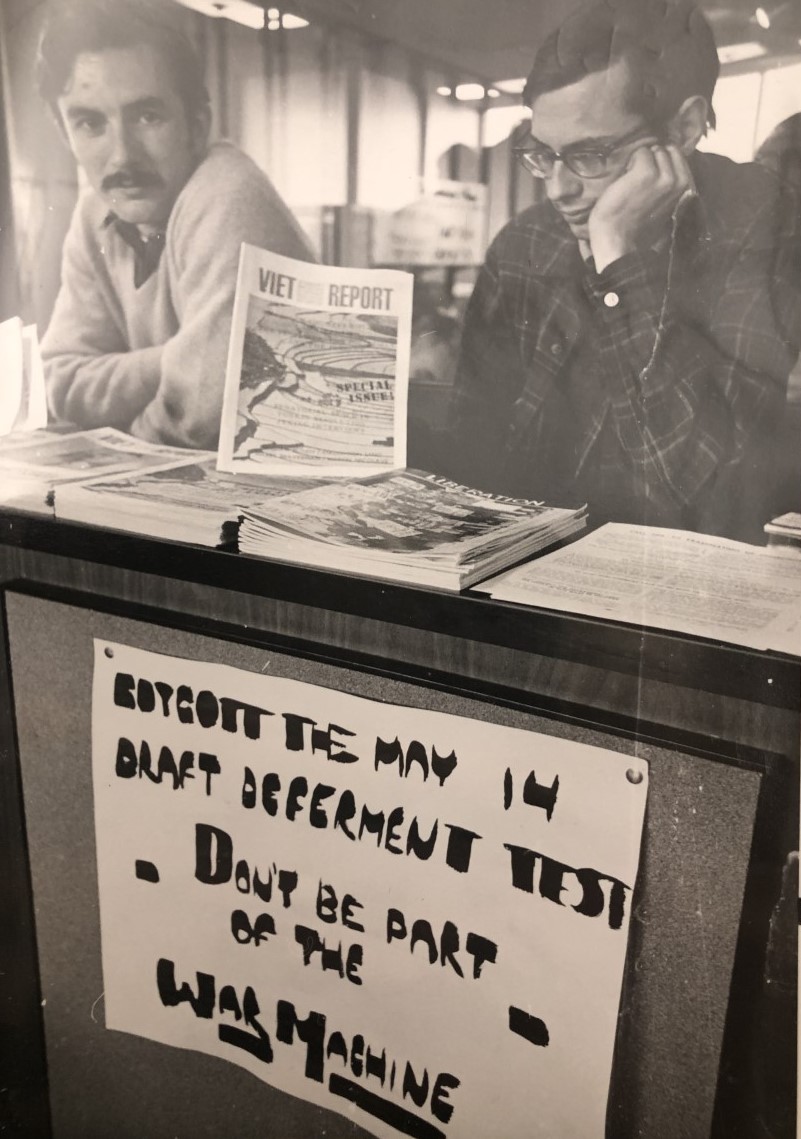 VIET REPORT
SPECIAL
ISSUE!
LIBERATION
BOYCOTT THE MAY 14
DRAFT DEFERMENT TEST
- DON'T BE PART
OF THE -
WAR MACHINE